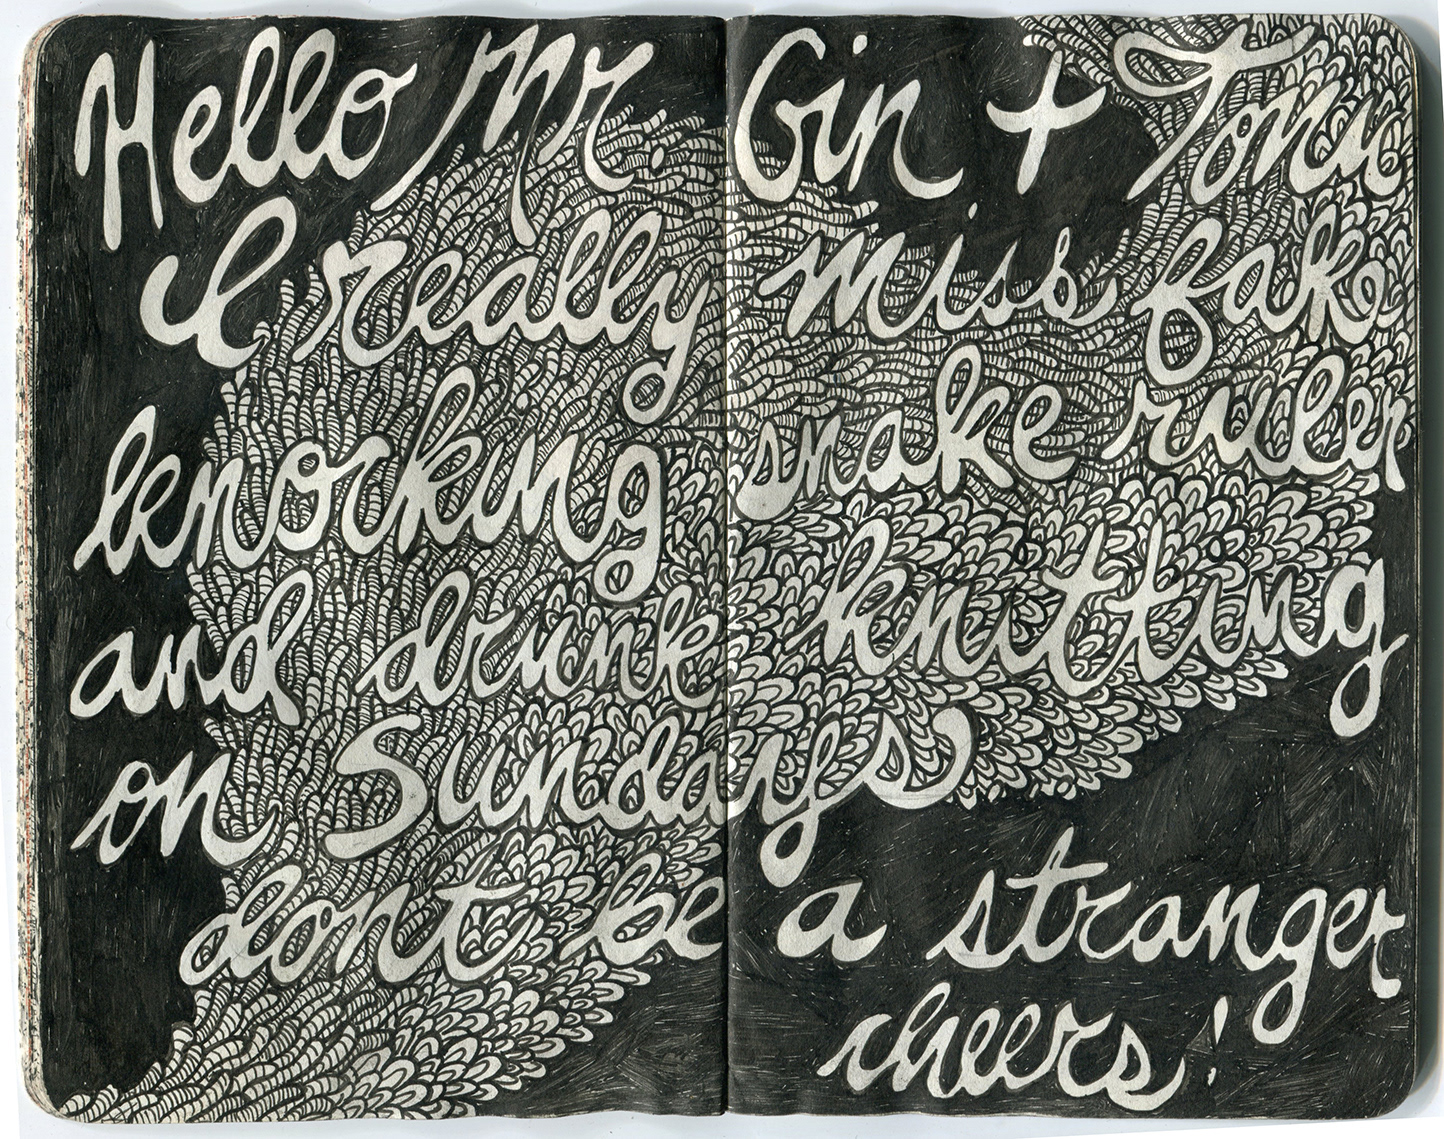 Hello Mr. Gin + Tonic
I really miss fake
knorking snake ruler
and drunk knitting
on Sundays
dont be a stranger
cheers!